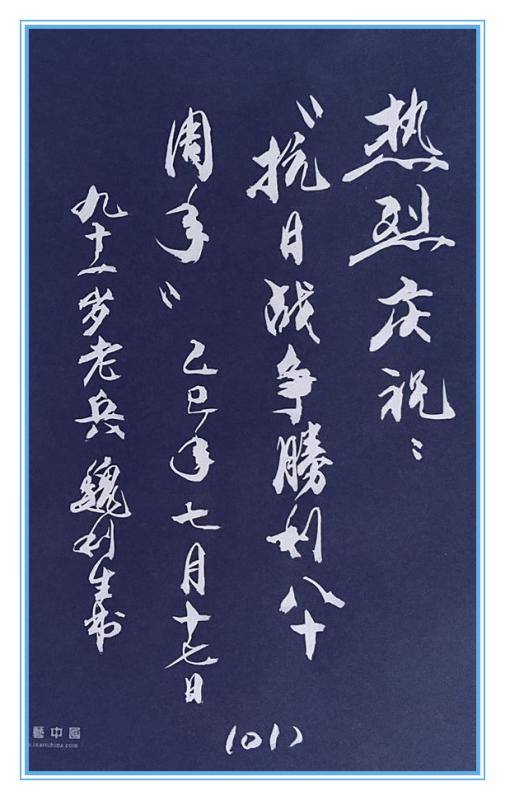 热烈庆祝：
“抗日战争勝利八十
周年”乙巳年七月十七日
九十一岁老兵 魏利生书
(01)
藝中國